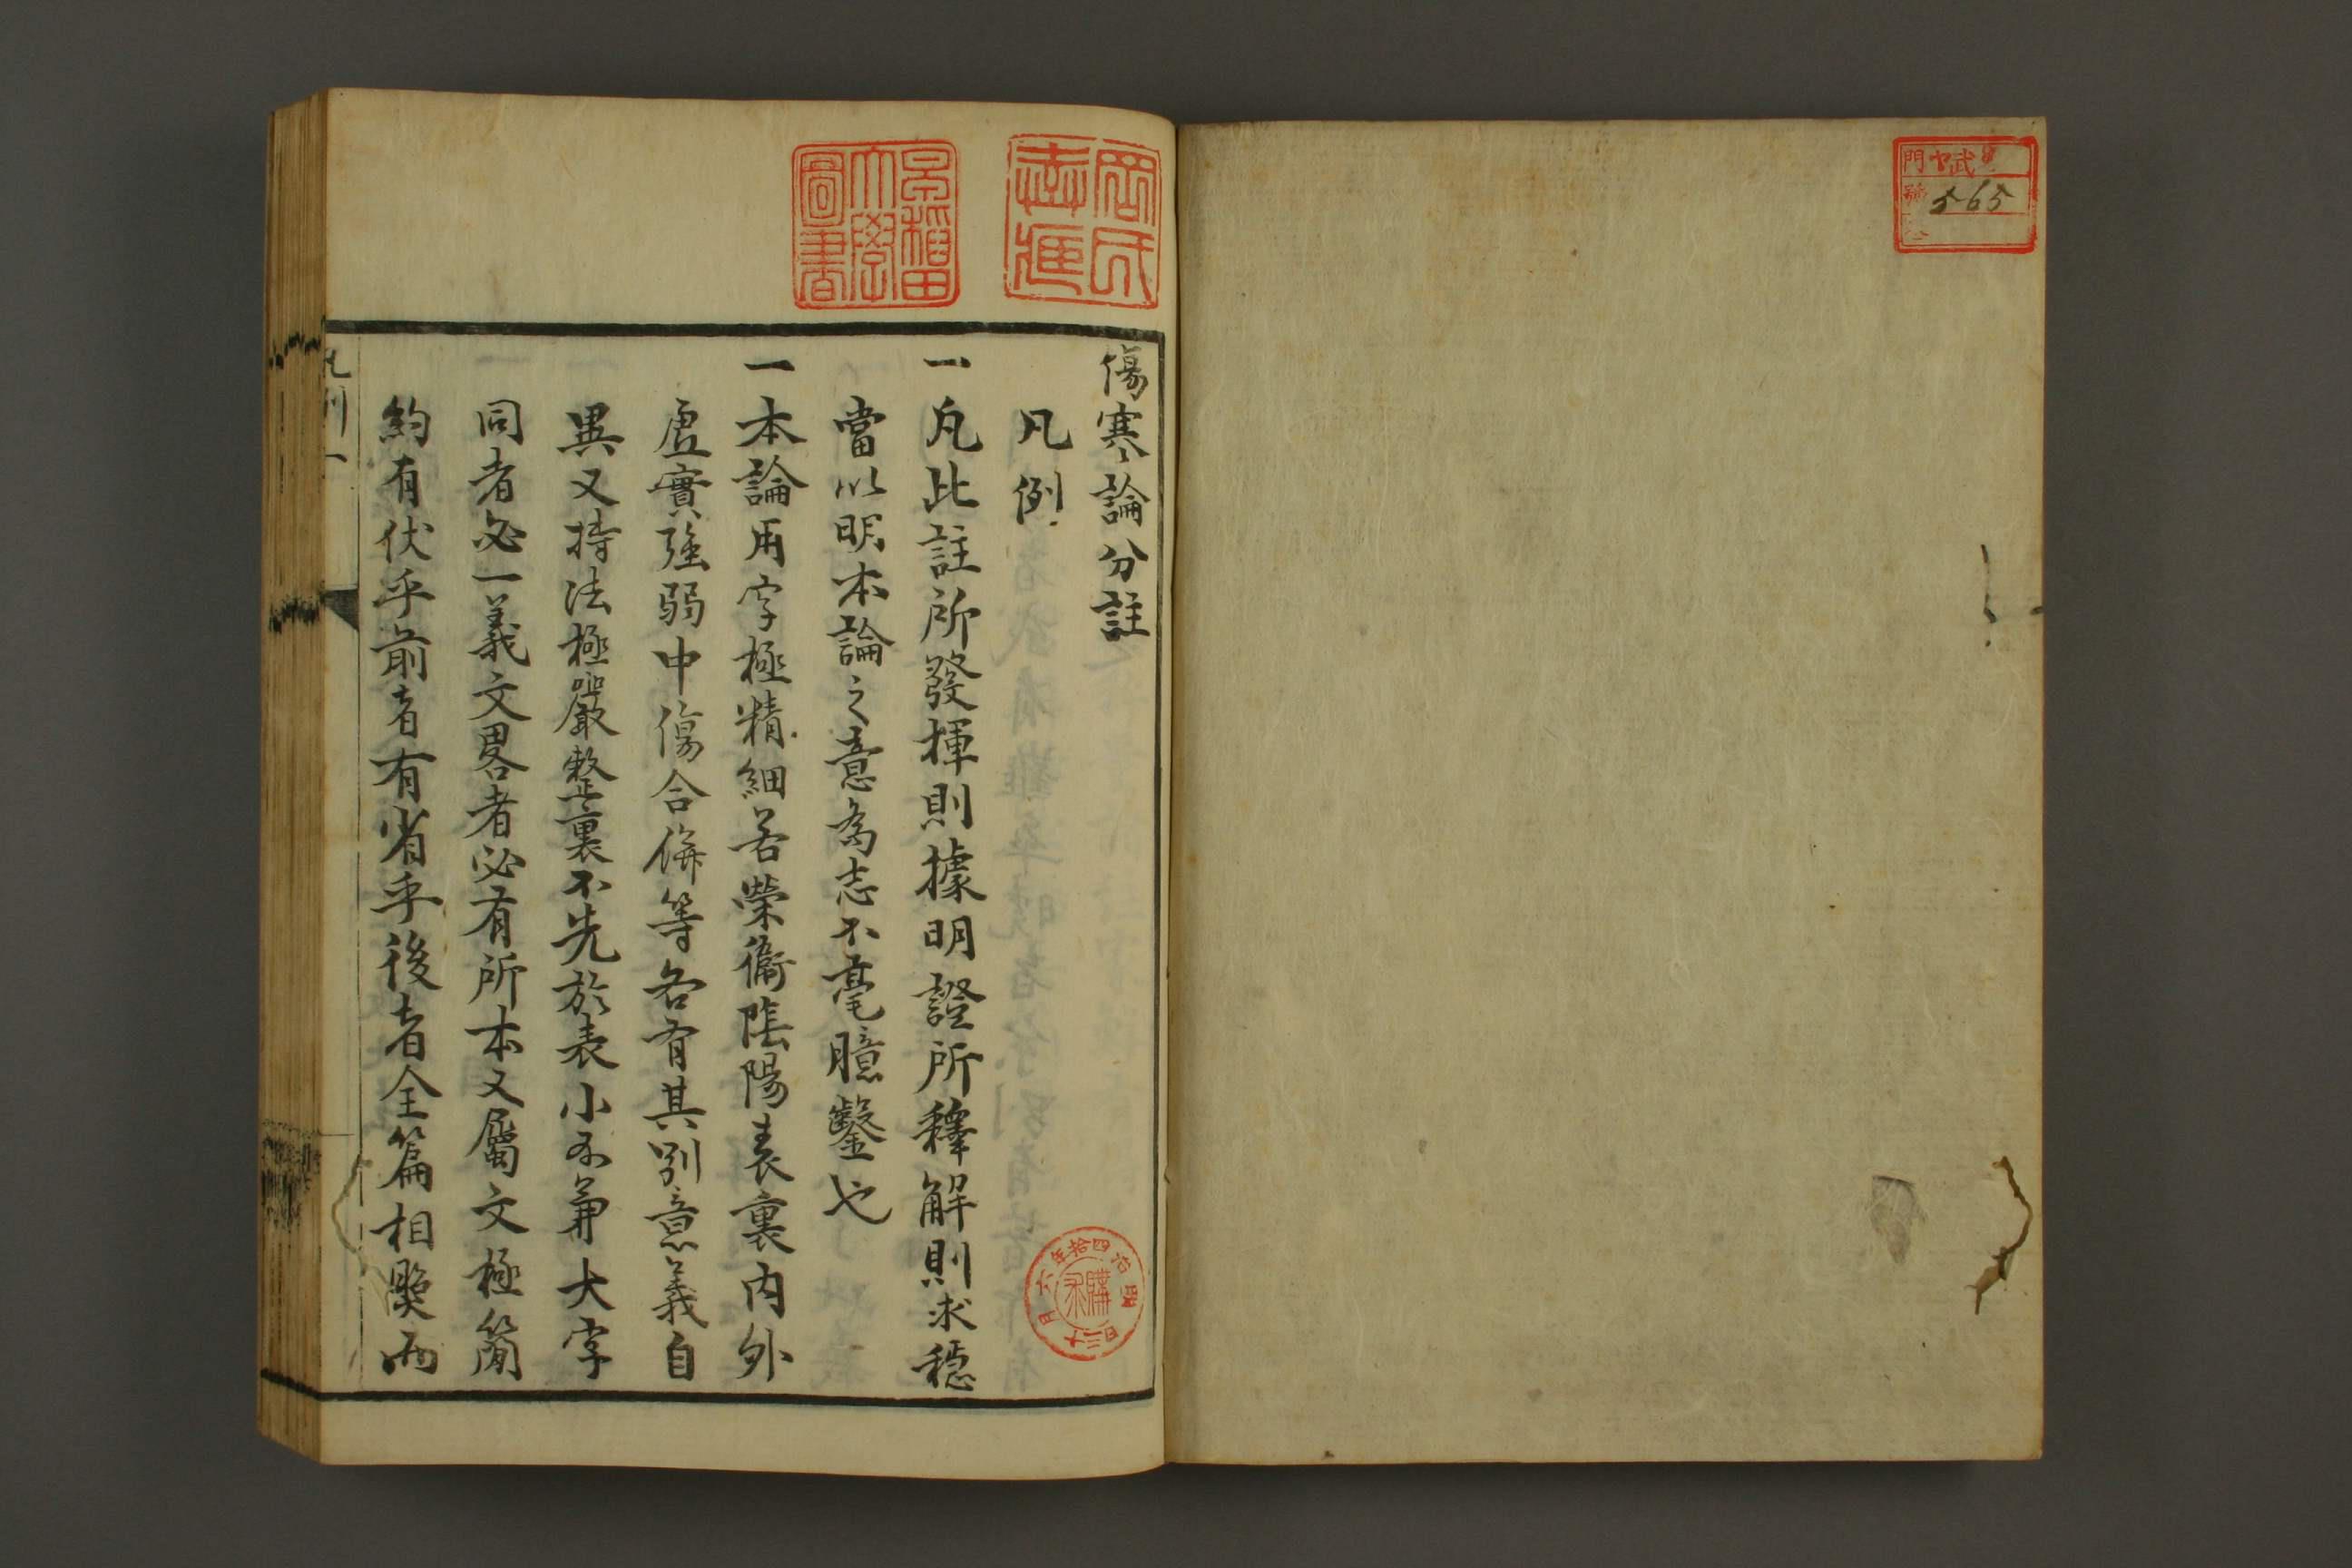 門 ヤ
號 565
岡氏志雄
早稲田大學圖書
傷寒論分註
凡例
一凡此註所發揮則據明證所釋解則求穩
當以明本論之意為志不毫臆鑿也
一本論用字極精細若榮衞陰陽表裏内外
虚實強弱中傷合併等各有其別意義自
異又持法極嚴整裏不先於表小不兼大字
同者必一義文畧者必有所本又屬文極簡
約有伏乎前者有省乎後者全篇相照而
明治四拾年六月二十三日
購求
凡例 一